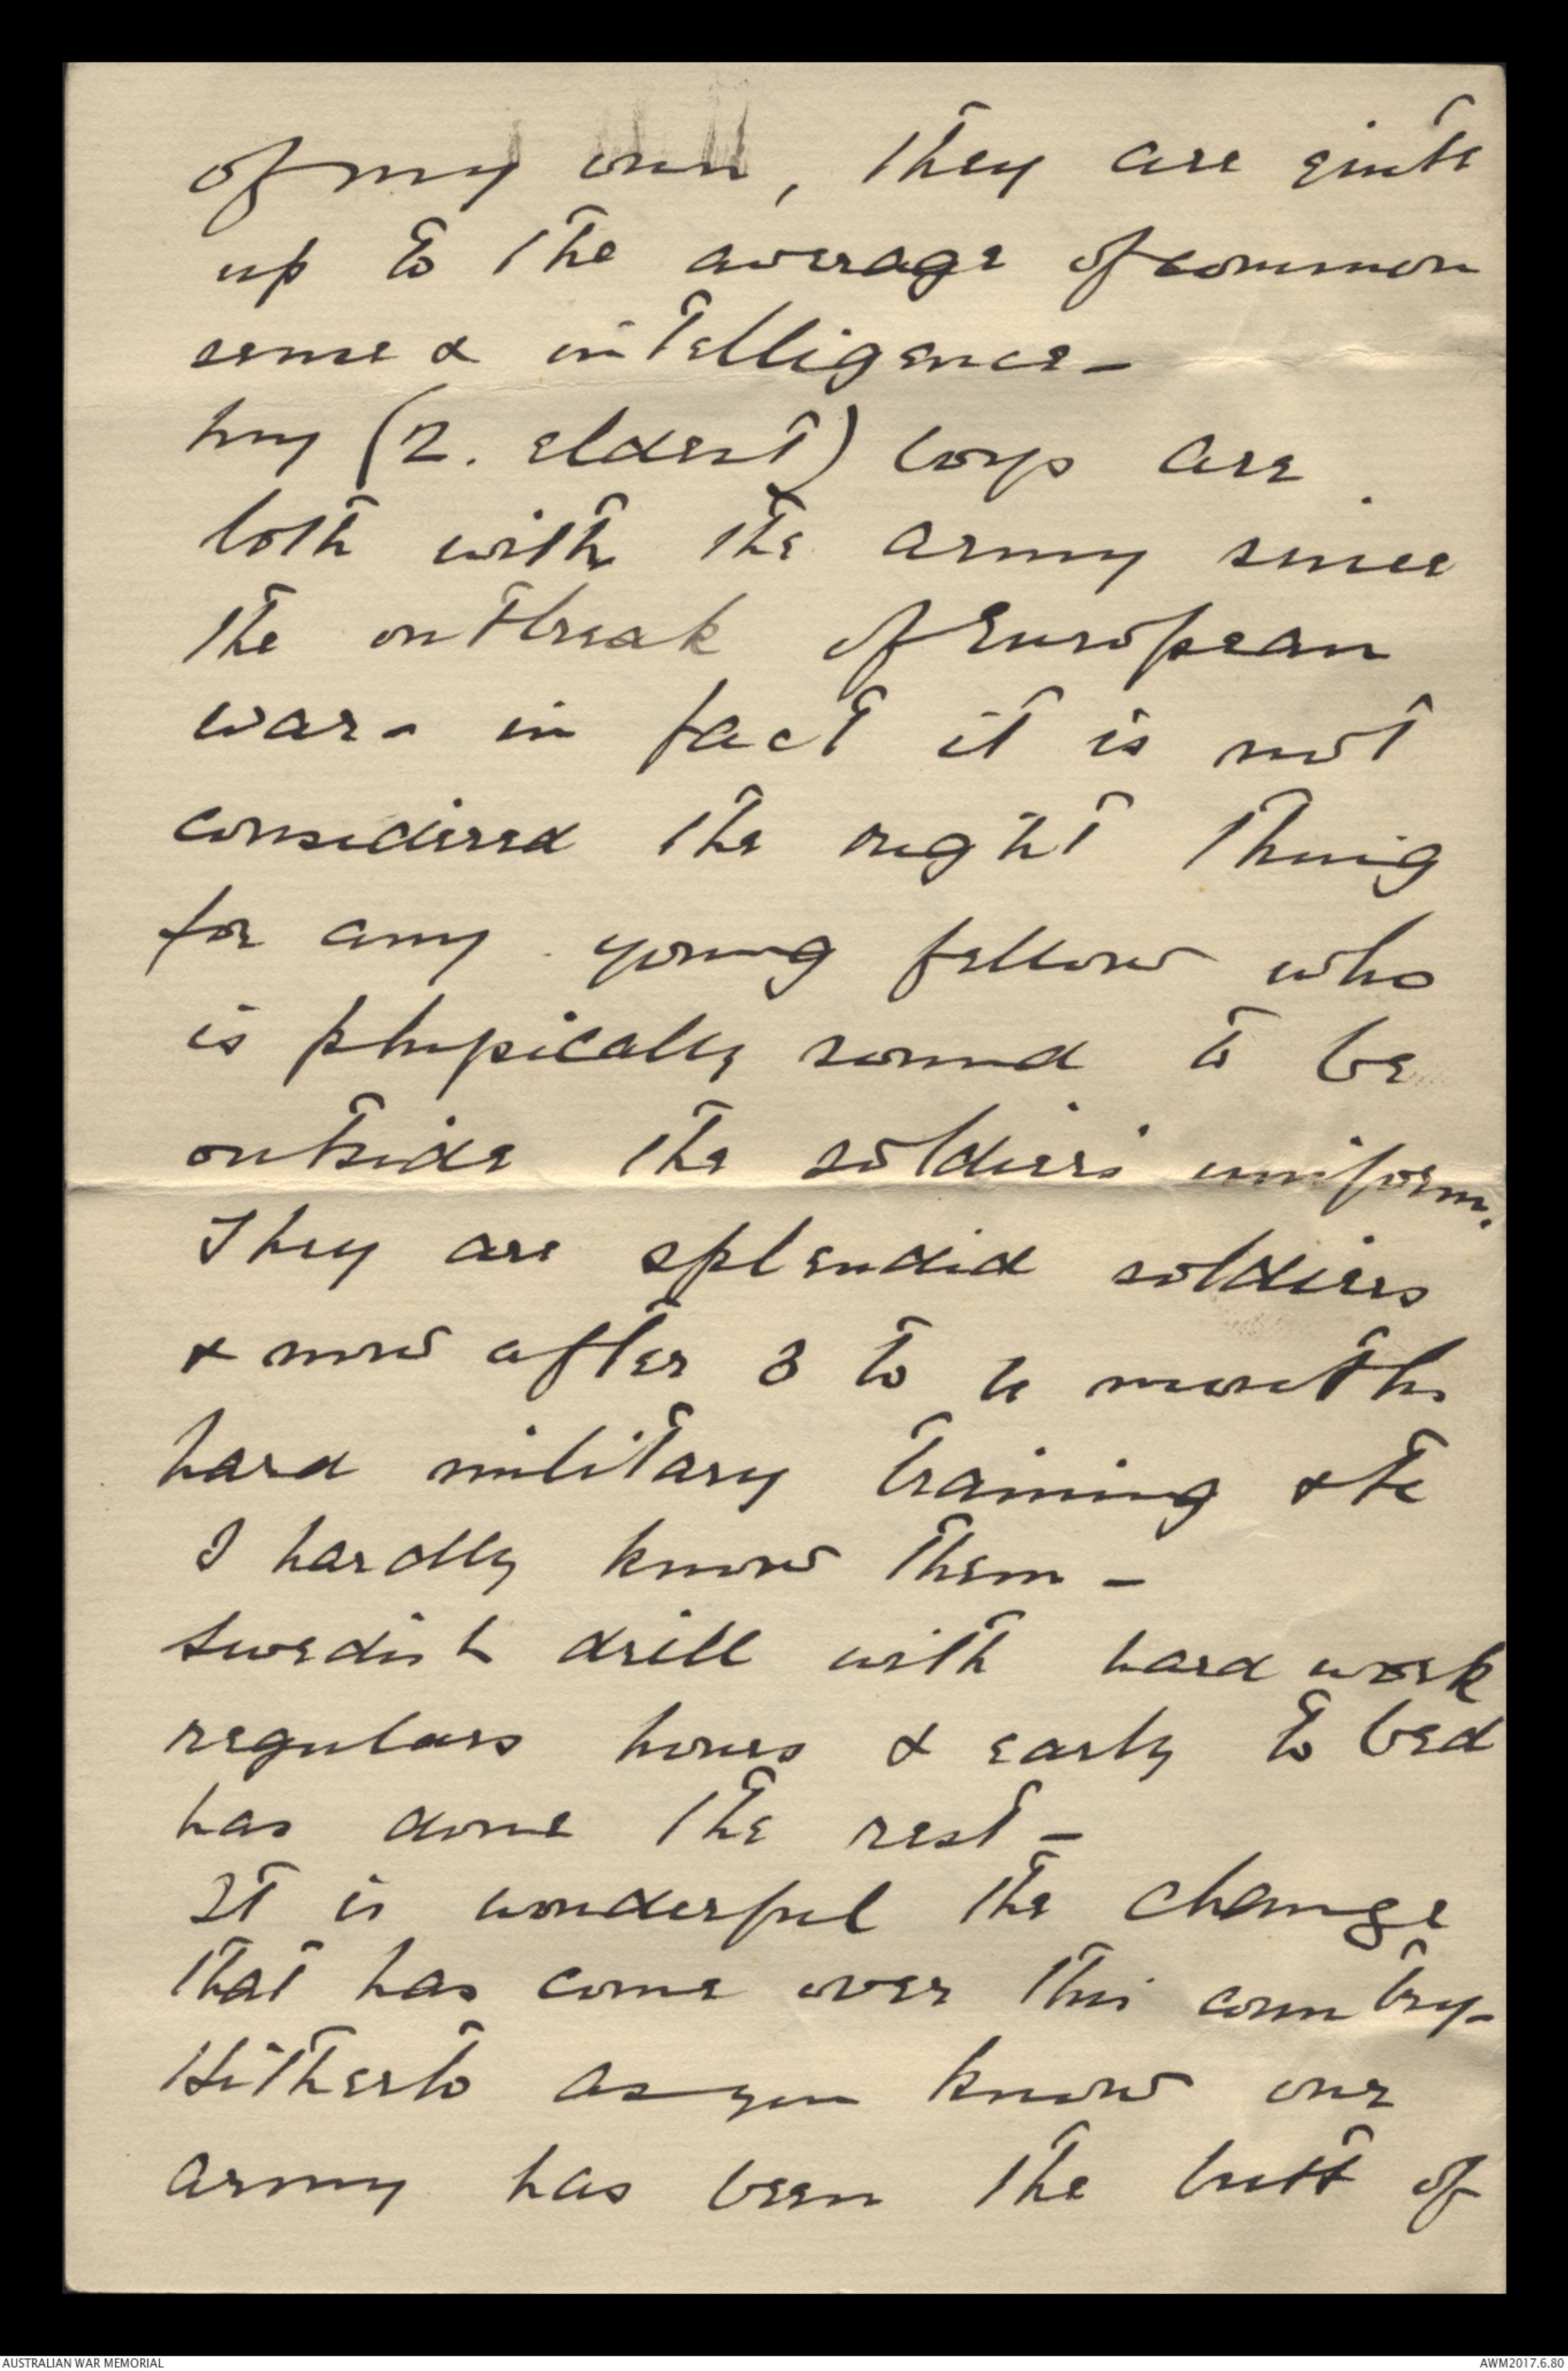 of my own, they are quite
up to the average of common
sense & intelligence -
my (2. eldest) boys are
both with the army since
the outbreak of European
war - in fact it is not
considered the right thing
for any young fellow who
is physically sound to be
outside the soldiers uniform.
They are splendid soldiers
& now after 3 to 4 months
hard military training &tc
I hardly know them -
Swedish drill with hard work
regulars hours & early to bed
has done the rest -
It is wonderful the change
that has come over this country -
Hitherto as you know our
army has been the butt of
AUSTRALIAN WAR MEMORIAL
AWM2017.6.80